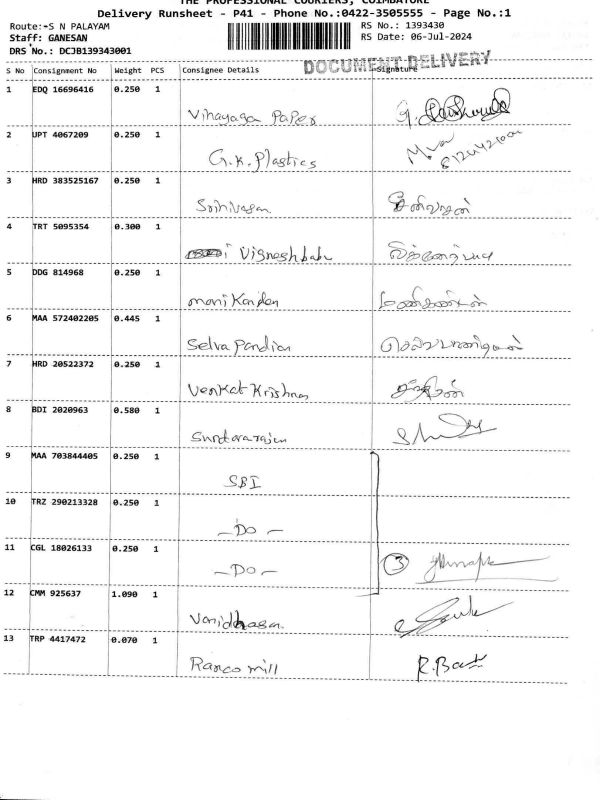 THE PROFESSIONAL COURIERS, COIMBATORE
Delivery Runsheet - P41 - Phone No.:0422-3505555 - Page No.:1
Route:-S N PALAYAM RS No.: 1393430
Staff: GANESAN RS Date: 06-Jul-2024
DRS No.: DCJB139343001
DOCUMENT DELIVERY
S No Consignment No Weight PCS Consignee Details Signature
1 EDQ 16696416 0.250 1
Vinayaga Paper
2 UPT 4067209 0.250 1
G.K. Plastics
3 HRD 383525167 0.250 1
Srinivasan சீனிவாசன்
4 TRT 5095354 0.300 1
Vigneshbabu
5 DDG 814968 0.250 1
mani Kandan மணிகண்டன்
6 MAA 572402205 0.445 1
Selva Pandian செல்வபாண்டியன்
7 HRD 20522372 0.250 1
Venkat Krishnan
8 BDI 2020963 0.580 1
Sundararajan
9 MAA 703844405 0.250 1
SBI
10 TRZ 290213328 0.250 1
- Do -
11 CGL 18026133 0.250 1
- Do - 3
12 CMM 925637 1.090 1
Vanidhasan
13 TRP 4417472 0.070 1
Ranco mill